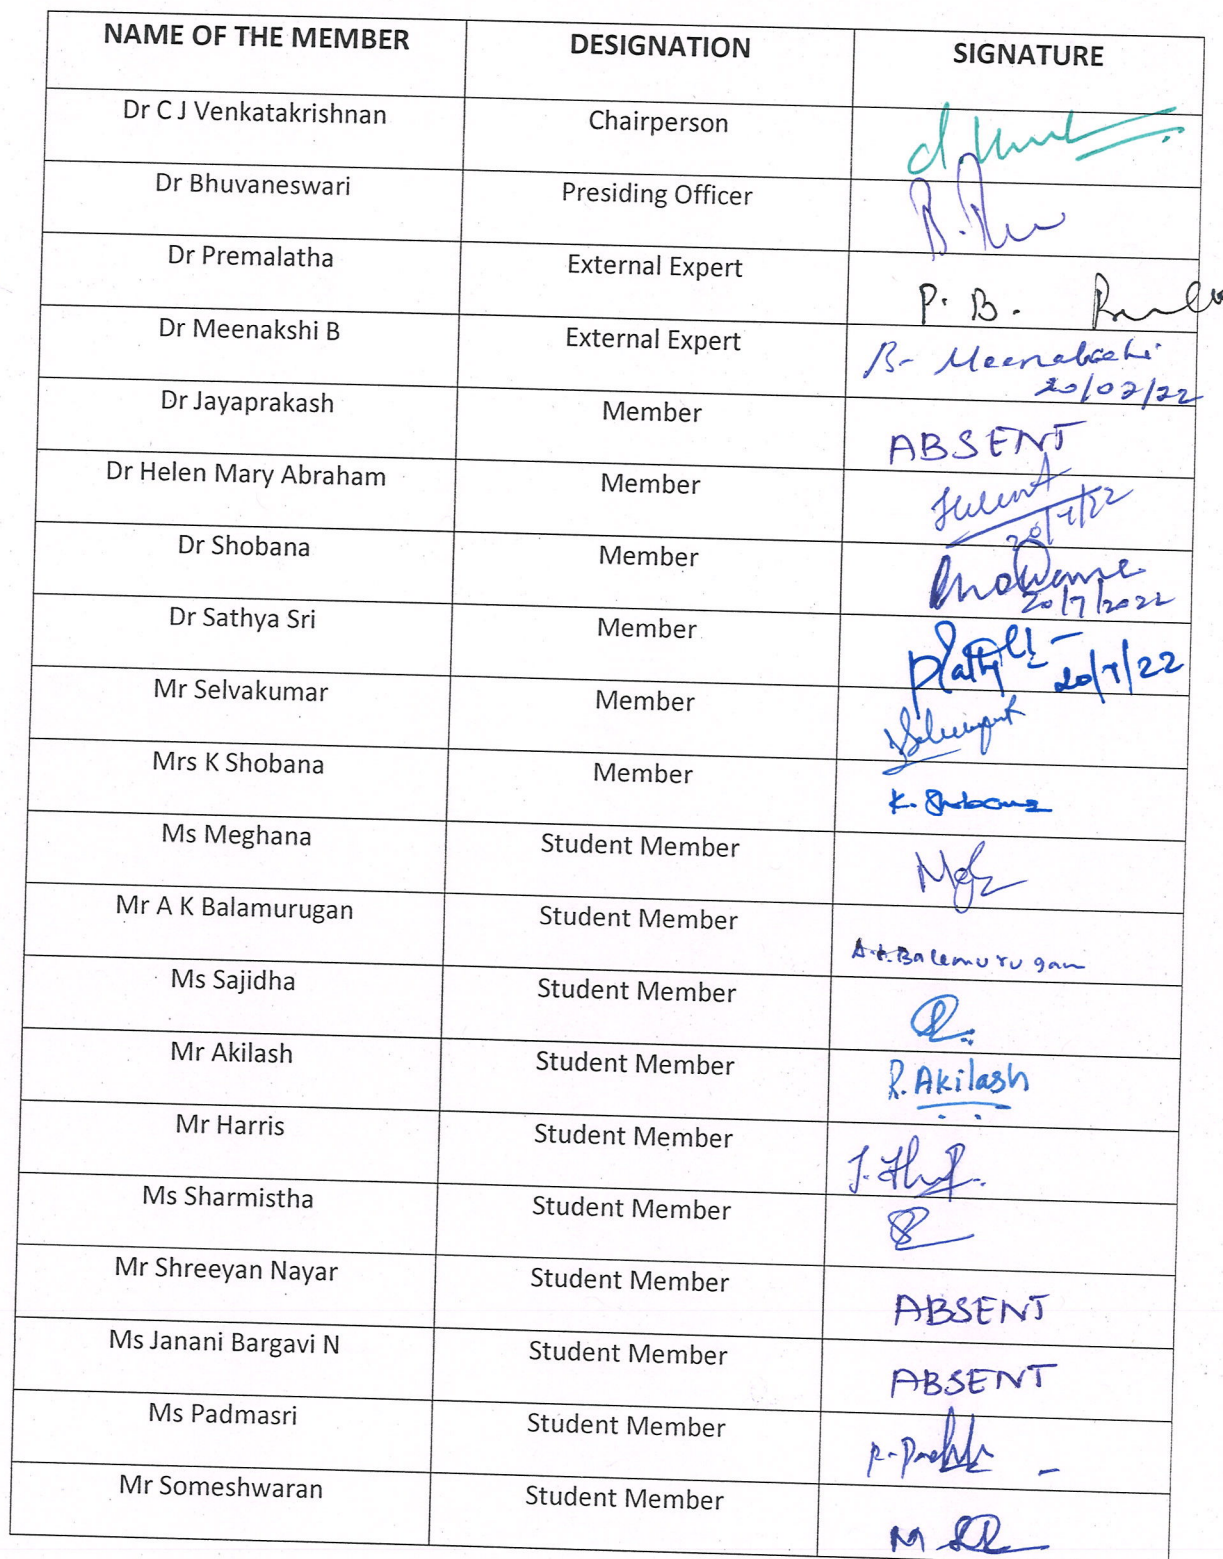 NAME OF THE MEMBER DESIGNATION SIGNATURE
Dr C J Venkatakrishnan Chairperson
Dr Bhuvaneswari Presiding Officer
Dr Premalatha External Expert P. B.
Dr Meenakshi B External Expert B- Meenakshi
20/07/22
Dr Jayaprakash Member ABSENT
Dr Helen Mary Abraham Member
20/7/22
Dr Shobana Member
20/7/2022
Dr Sathya Sri Member 20/7/22
Mr Selvakumar Member
Mrs K Shobana Member K. Shobana
Ms Meghana Student Member
Mr A K Balamurugan Student Member A.K.Balamurugan
Ms Sajidha Student Member
Mr Akilash Student Member R.Akilash
Mr Harris Student Member
Ms Sharmistha Student Member
Mr Shreeyan Nayar Student Member ABSENT
Ms Janani Bargavi N Student Member ABSENT
Ms Padmasri Student Member
Mr Someshwaran Student Member